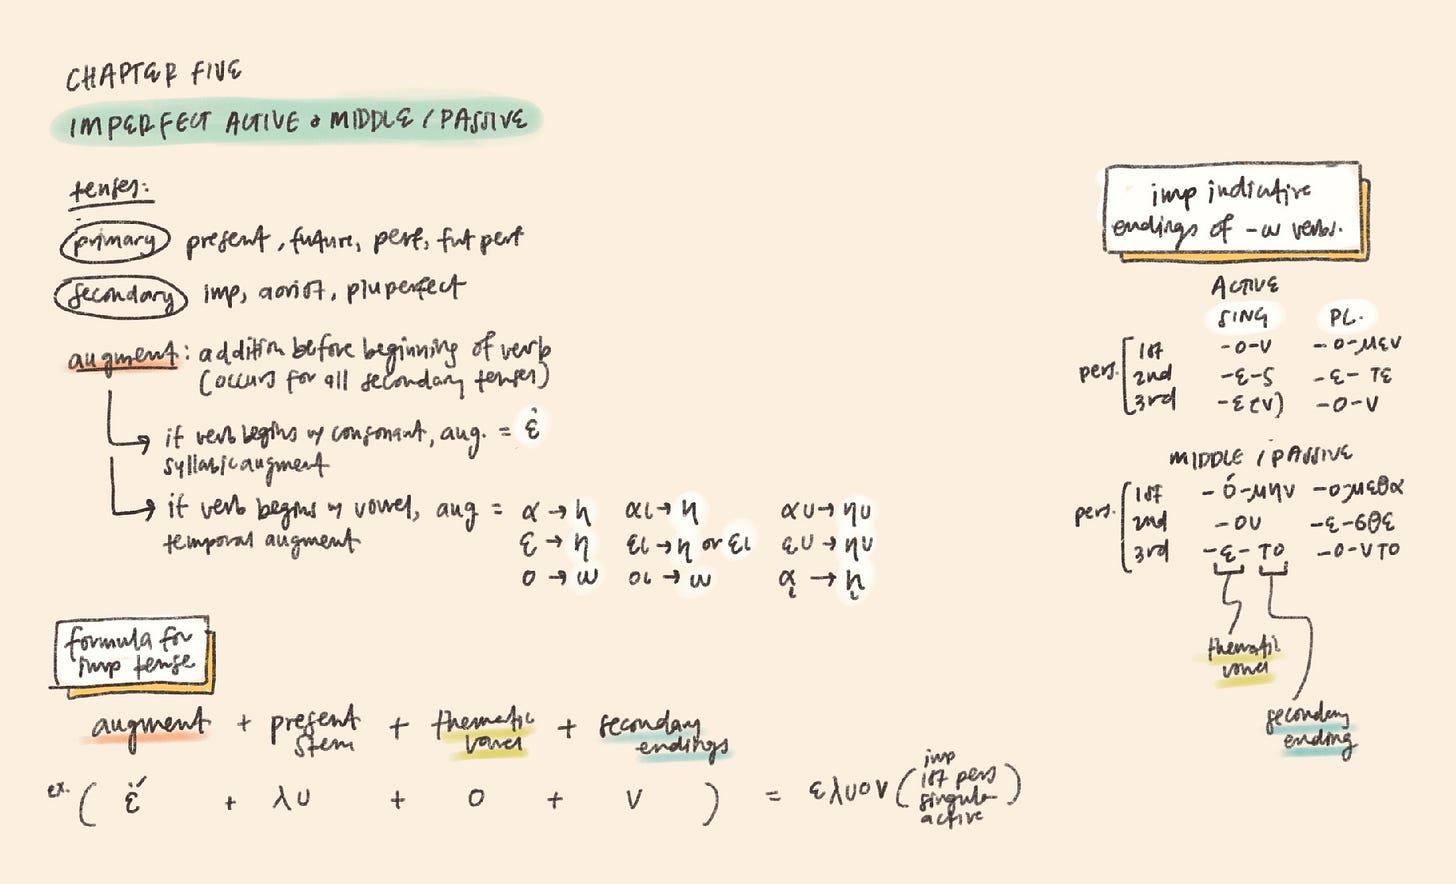 CHAPTER FIVE
IMPERFECT ACTIVE & MIDDLE / PASSIVE
tenses:
primary present, future, perf, fut perf
secondary imp, aorist, pluperfect
augment: addition before beginning of verb
(occurs for all secondary tenses)
if verb begins w/ consonant, aug. = ἐ
syllabic augment
if verb begins w/ vowel, aug = α → η αι → ῃ αυ → ηυ
temporal augment ε → η ει → ῃ or ει ευ → ηυ
ο → ω οι → ῳ ᾳ → ῃ
formula for
imp tense
augment + present stem + thematic vowel + secondary endings
ex. ( ἐ + λυ + ο + ν ) = ελυον ( imp 1st pers singular active )
imp indicative
endings of -ω verbs.
ACTIVE
SING PL.
pers.
1st -ο-ν -ο-μεν
2nd -ε-ς -ε-τε
3rd -ε(ν) -ο-ν
MIDDLE / PASSIVE
pers.
1st -ό-μην -ο-μεθα
2nd -ου -ε-σθε
3rd -ε-το -ο-ντο
thematic
vowel
secondary
ending